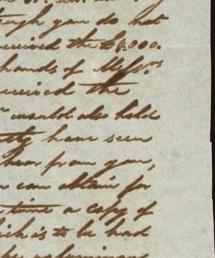 though you do not
received the £8,000.
hands of Messrs
received the
would also hold
have seen
hear from you,
can obtain for
time a copy of
which is to be had